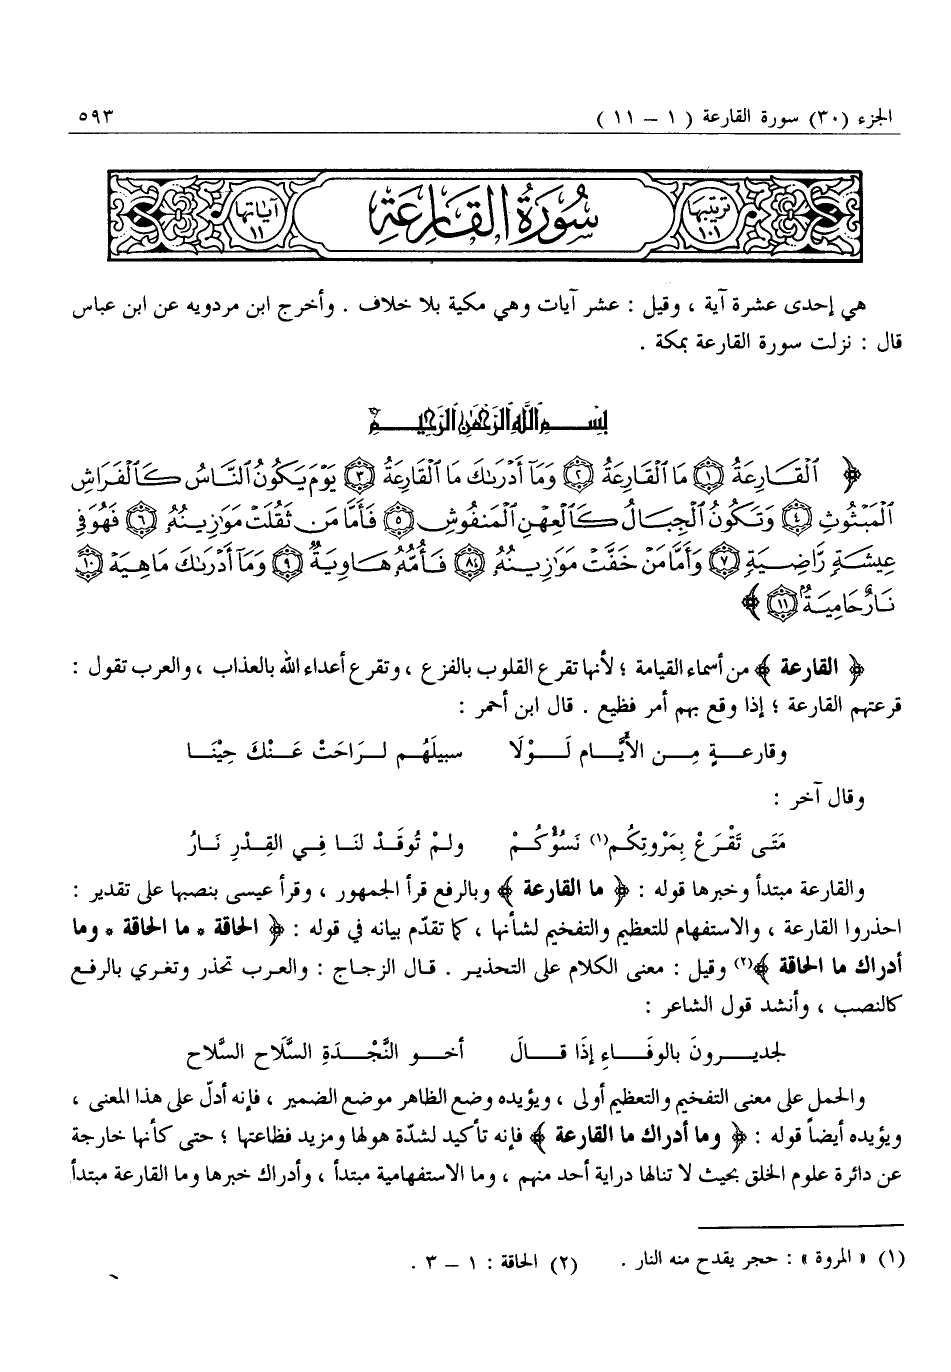 الجزء (٣٠) سورة القارعة ( ١ – ١١ ) ٥٩٣
ترتيبها ١٠١ سُورَةُ القَارِعَةِ آياتها ١١
هي إحدى عشرة آية ، وقيل : عشر آيات وهي مكية بلا خلاف . وأخرج ابن مردويه عن ابن عباس
قال : نزلت سورة القارعة بمكة .
بِسْمِ اللَّهِ الرَّحْمَٰنِ الرَّحِيمِ
﴿ ٱلْقَارِعَةُ ١ مَا ٱلْقَارِعَةُ ٢ وَمَآ أَدْرَىٰكَ مَا ٱلْقَارِعَةُ ٣ يَوْمَ يَكُونُ ٱلنَّاسُ كَٱلْفَرَاشِ
ٱلْمَبْثُوثِ ٤ وَتَكُونُ ٱلْجِبَالُ كَٱلْعِهْنِ ٱلْمَنفُوشِ ٥ فَأَمَّا مَن ثَقُلَتْ مَوَٰزِينُهُۥ ٦ فَهُوَ فِي
عِيشَةٍ رَّاضِيَةٍ ٧ وَأَمَّا مَنْ خَفَّتْ مَوَٰزِينُهُۥ ٨ فَأُمُّهُۥ هَاوِيَةٌ ٩ وَمَآ أَدْرَىٰكَ مَاهِيَهْ ١٠
نَارٌ حَامِيَةٌۢ ١١ ﴾
﴿ القارعة ﴾ من أسماء القيامة ؛ لأنها تقرع القلوب بالفزع ، وتقرع أعداء الله بالعذاب ، والعرب تقول :
قرعتهم القارعة ؛ إذا وقع بهم أمر فظيع . قال ابن أحمر :
وقارعـــةٍ مِـــن الأيَّـــام لَـــوْلَا سبيلَهُـــم لـــرَاحَتْ عَـــنْكَ حِيْنَـــا
وقال آخر :
مَتَى تَقْرَعْ بِمَرْوتِكُم(١) نَسُؤْكُـــمْ ولـــمْ تُوقَـــدْ لنَـــا فِـــي القِـــدْرِ نَـــارُ
والقارعة مبتدأ وخبرها قوله : ﴿ ما القارعة ﴾ وبالرفع قرأ الجمهور ، وقرأ عيسى بنصبها على تقدير :
احذروا القارعة ، والاستفهام للتعظيم والتفخيم لشأنها ، كما تقدّم بيانه في قوله : ﴿ الحاقة * ما الحاقة * وما
أدراك ما الحاقة ﴾(٢) وقيل : معنى الكلام على التحذير . قال الزجاج : والعرب تحذر وتغري بالرفع
كالنصب ، وأنشد قول الشاعر :
لجديـــرونَ بالوفَـــاءِ إذَا قـــالَ أخـــو النَّجْـــدَةِ السَّلَاح السَّلاح
والحمل على معنى التفخيم والتعظيم أولى ، ويؤيده وضع الظاهر موضع الضمير ، فإنه أدلّ على هذا المعنى ،
ويؤيده أيضاً قوله : ﴿ وما أدراك ما القارعة ﴾ فإنه تأكيد لشدّة هولها ومزيد فظاعتها ؛ حتى كأنها خارجة
عن دائرة علوم الخلق بحيث لا تنالها دراية أحد منهم ، وما الاستفهامية مبتدأ ، وأدراك خبرها وما القارعة مبتدأ
(١) « المروة » : حجر يقدح منه النار . (٢) الحاقة : ١ – ٣ .